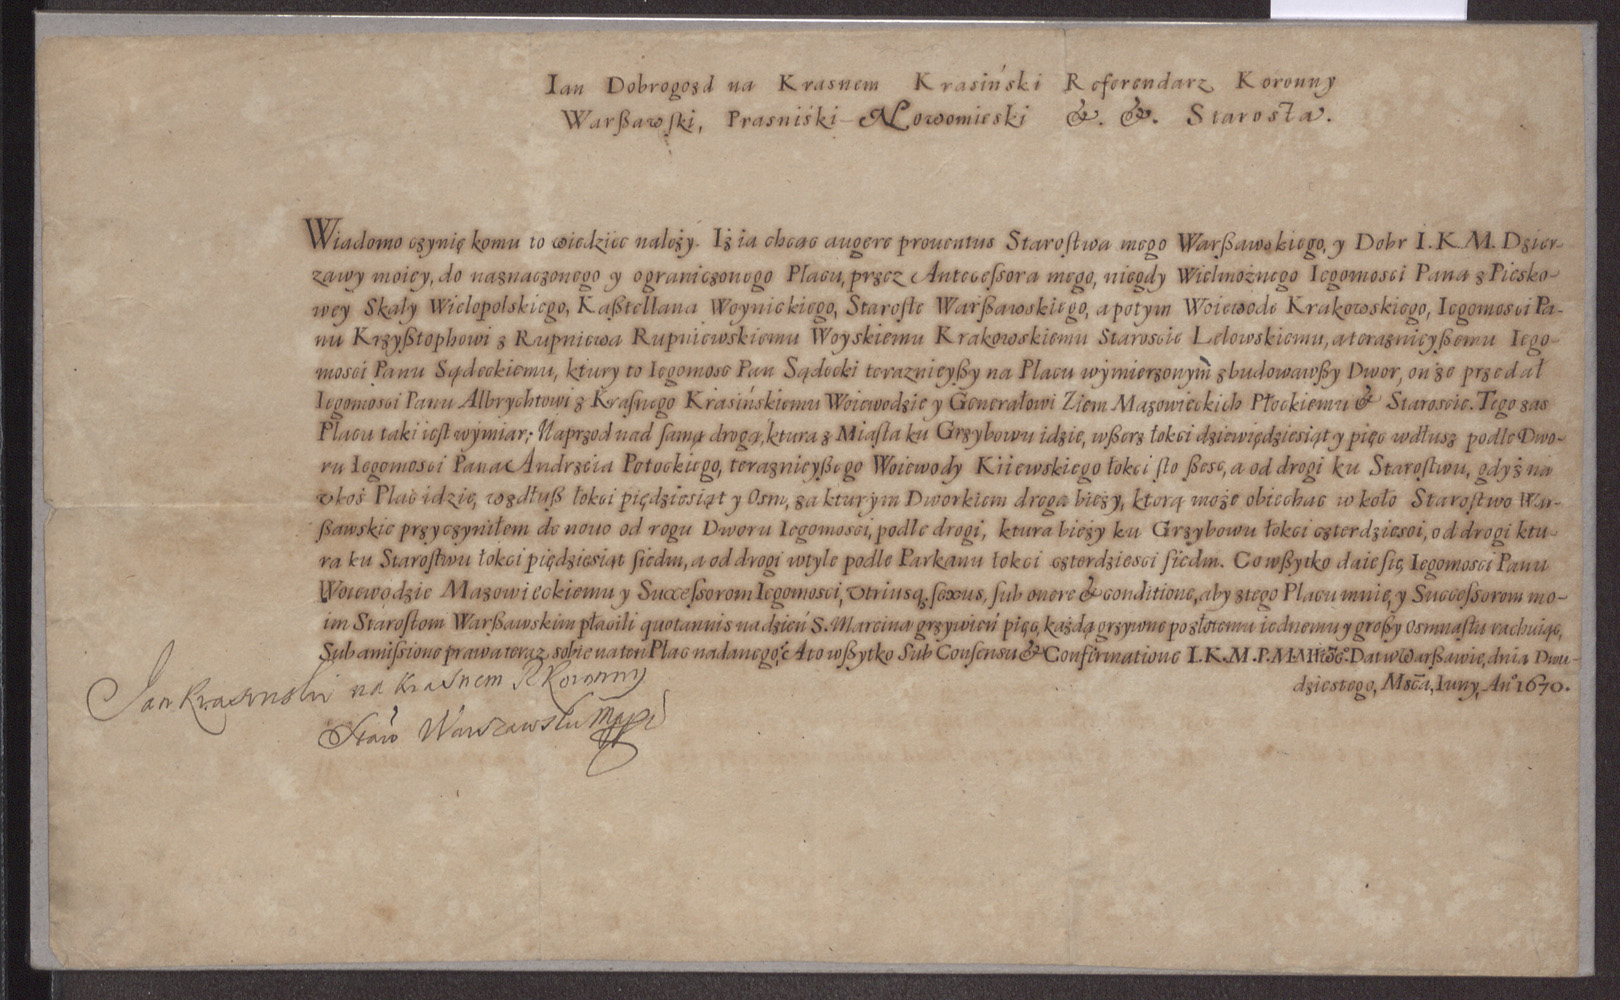 Ian Dobrogozd na Krasnem Krasiński Referendarz Koronny
Warßawſki, Prasniśki Nowomieski &. &. Starosta.
Wiadomo czynię komu to wiedziec należy. Iż ia chcąc augere prouentus Staroſtwa mego Warßawskiego, y Dobr I.K.M. Dzier-
zawy moiey, do naznaczonego y ograniczonego Placu, przez Antecessora mego, niegdy Wielmożnego Iegomosci Pana z Piesko-
wey Skały Wielopolskiego, Kaßtellana Woynickiego, Staroste Warßawskiego, a potym Woiewode Krakowskiego, Iegomosci Pa-
nu Krzyßtophowi z Rupniewa Rupniewskiemu Woyskiemu Krakowskiemu Staroscie Lelowskiemu, a teraznieyßemu Iego-
mosci Panu Sądeckiemu, ktury to Iegomosc Pan Sądecki teraznieyßy na Placu wymierzonym zbudowawßy Dwor, on że przedał
Iegomosci Panu Albrychtowi z Kraſnego Krasińskiemu Woiewodzie y Generałowi Ziem Mazowieckich Płockiemu & Staroscie. Tego zas
Placu taki iest wymiar; Naprzod nad ſamą drogą, ktura z Miasta ku Grzybowu idzie, wßerz łokci dziewiędziesiąt y pięc wdłusz podle Dwo-
ru Iegomosci Pana Andrzeia Potockiego, teraznieyßego Woiewody Kiiewskiego łokci ſto ßesc, a od drogi ku Staroſtwu, gdyż na
vkoś Plac idzie, wzdłuß łokci piędziesiąt y Osm, za kturym Dworkiem droga bieży, ktorą może obiechac w koło Staroſtwo War-
ßawskie przyczyniłem de nouo od rogu Dworu Iegomosci, podle drogi, ktura bieży ku Grzybowu łokci czterdziesci, od drogi ktu-
ra ku Staroſtwu łokci piędziesiąt ſiedm, a od drogi wtyle podle Parkanu łokci czterdziesci ſiedm. Co wßytko daie ſię Iegomosci Panu
Woiewodzie Mazowieckiemu y Successorom Iegomosci, vtriusq. ſexus, ſub onere & conditione, aby z tego Placu mnie, y Successorom mo-
im Staroſtom Warßawskim płacili quotannis na dzień S. Marcina grzywień pięc, każdą grzywne po złotemu iednemu y großy osmnastu rachuiąc,
Sub amissione prawa teraz sobie na ten Plac nadanego. A to wßytko Sub Consensu & Confirmatione I.K.M.P.M.M. Dat w Warßawie, dnia Dwu-
dziestego, Msca, Iuny, An° 1670.
Jan Krasinski na Krasnem R Koronny
Staro Warszawski mpp